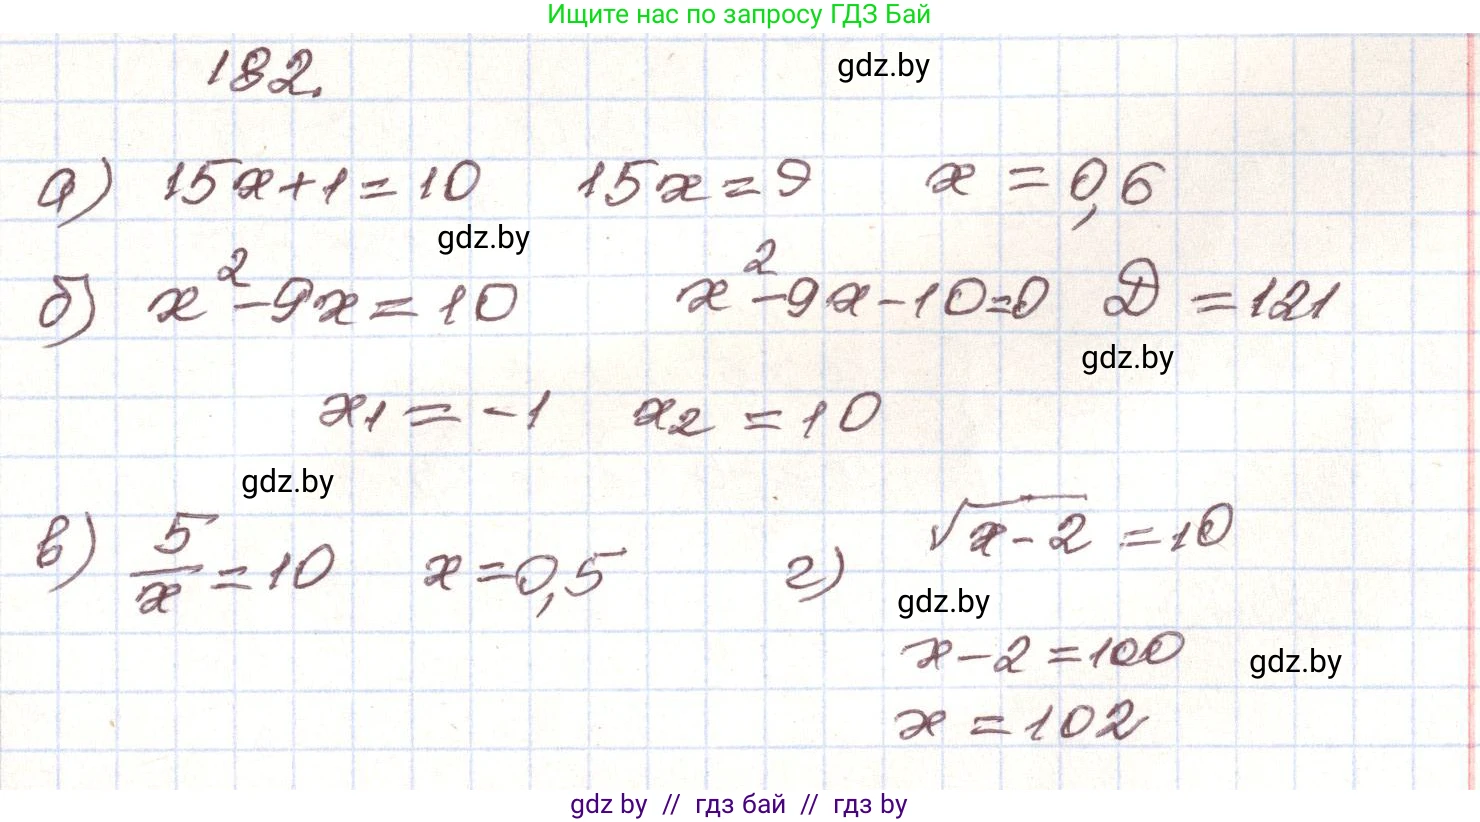 Ищите нас по запросу ГДЗ Бай
182.
gdz.by
а) 15x+1=10 15x=9 x=0,6
gdz.by
б) x²-9x=10 x²-9x-10=0 Д=121
gdz.by
x₁=-1 x₂=10
gdz.by
в) 5/x=10 x=0,5 г) √(x-2)=10
gdz.by
x-2=100
gdz.by
x=102
gdz by // гдз бай // гдз by